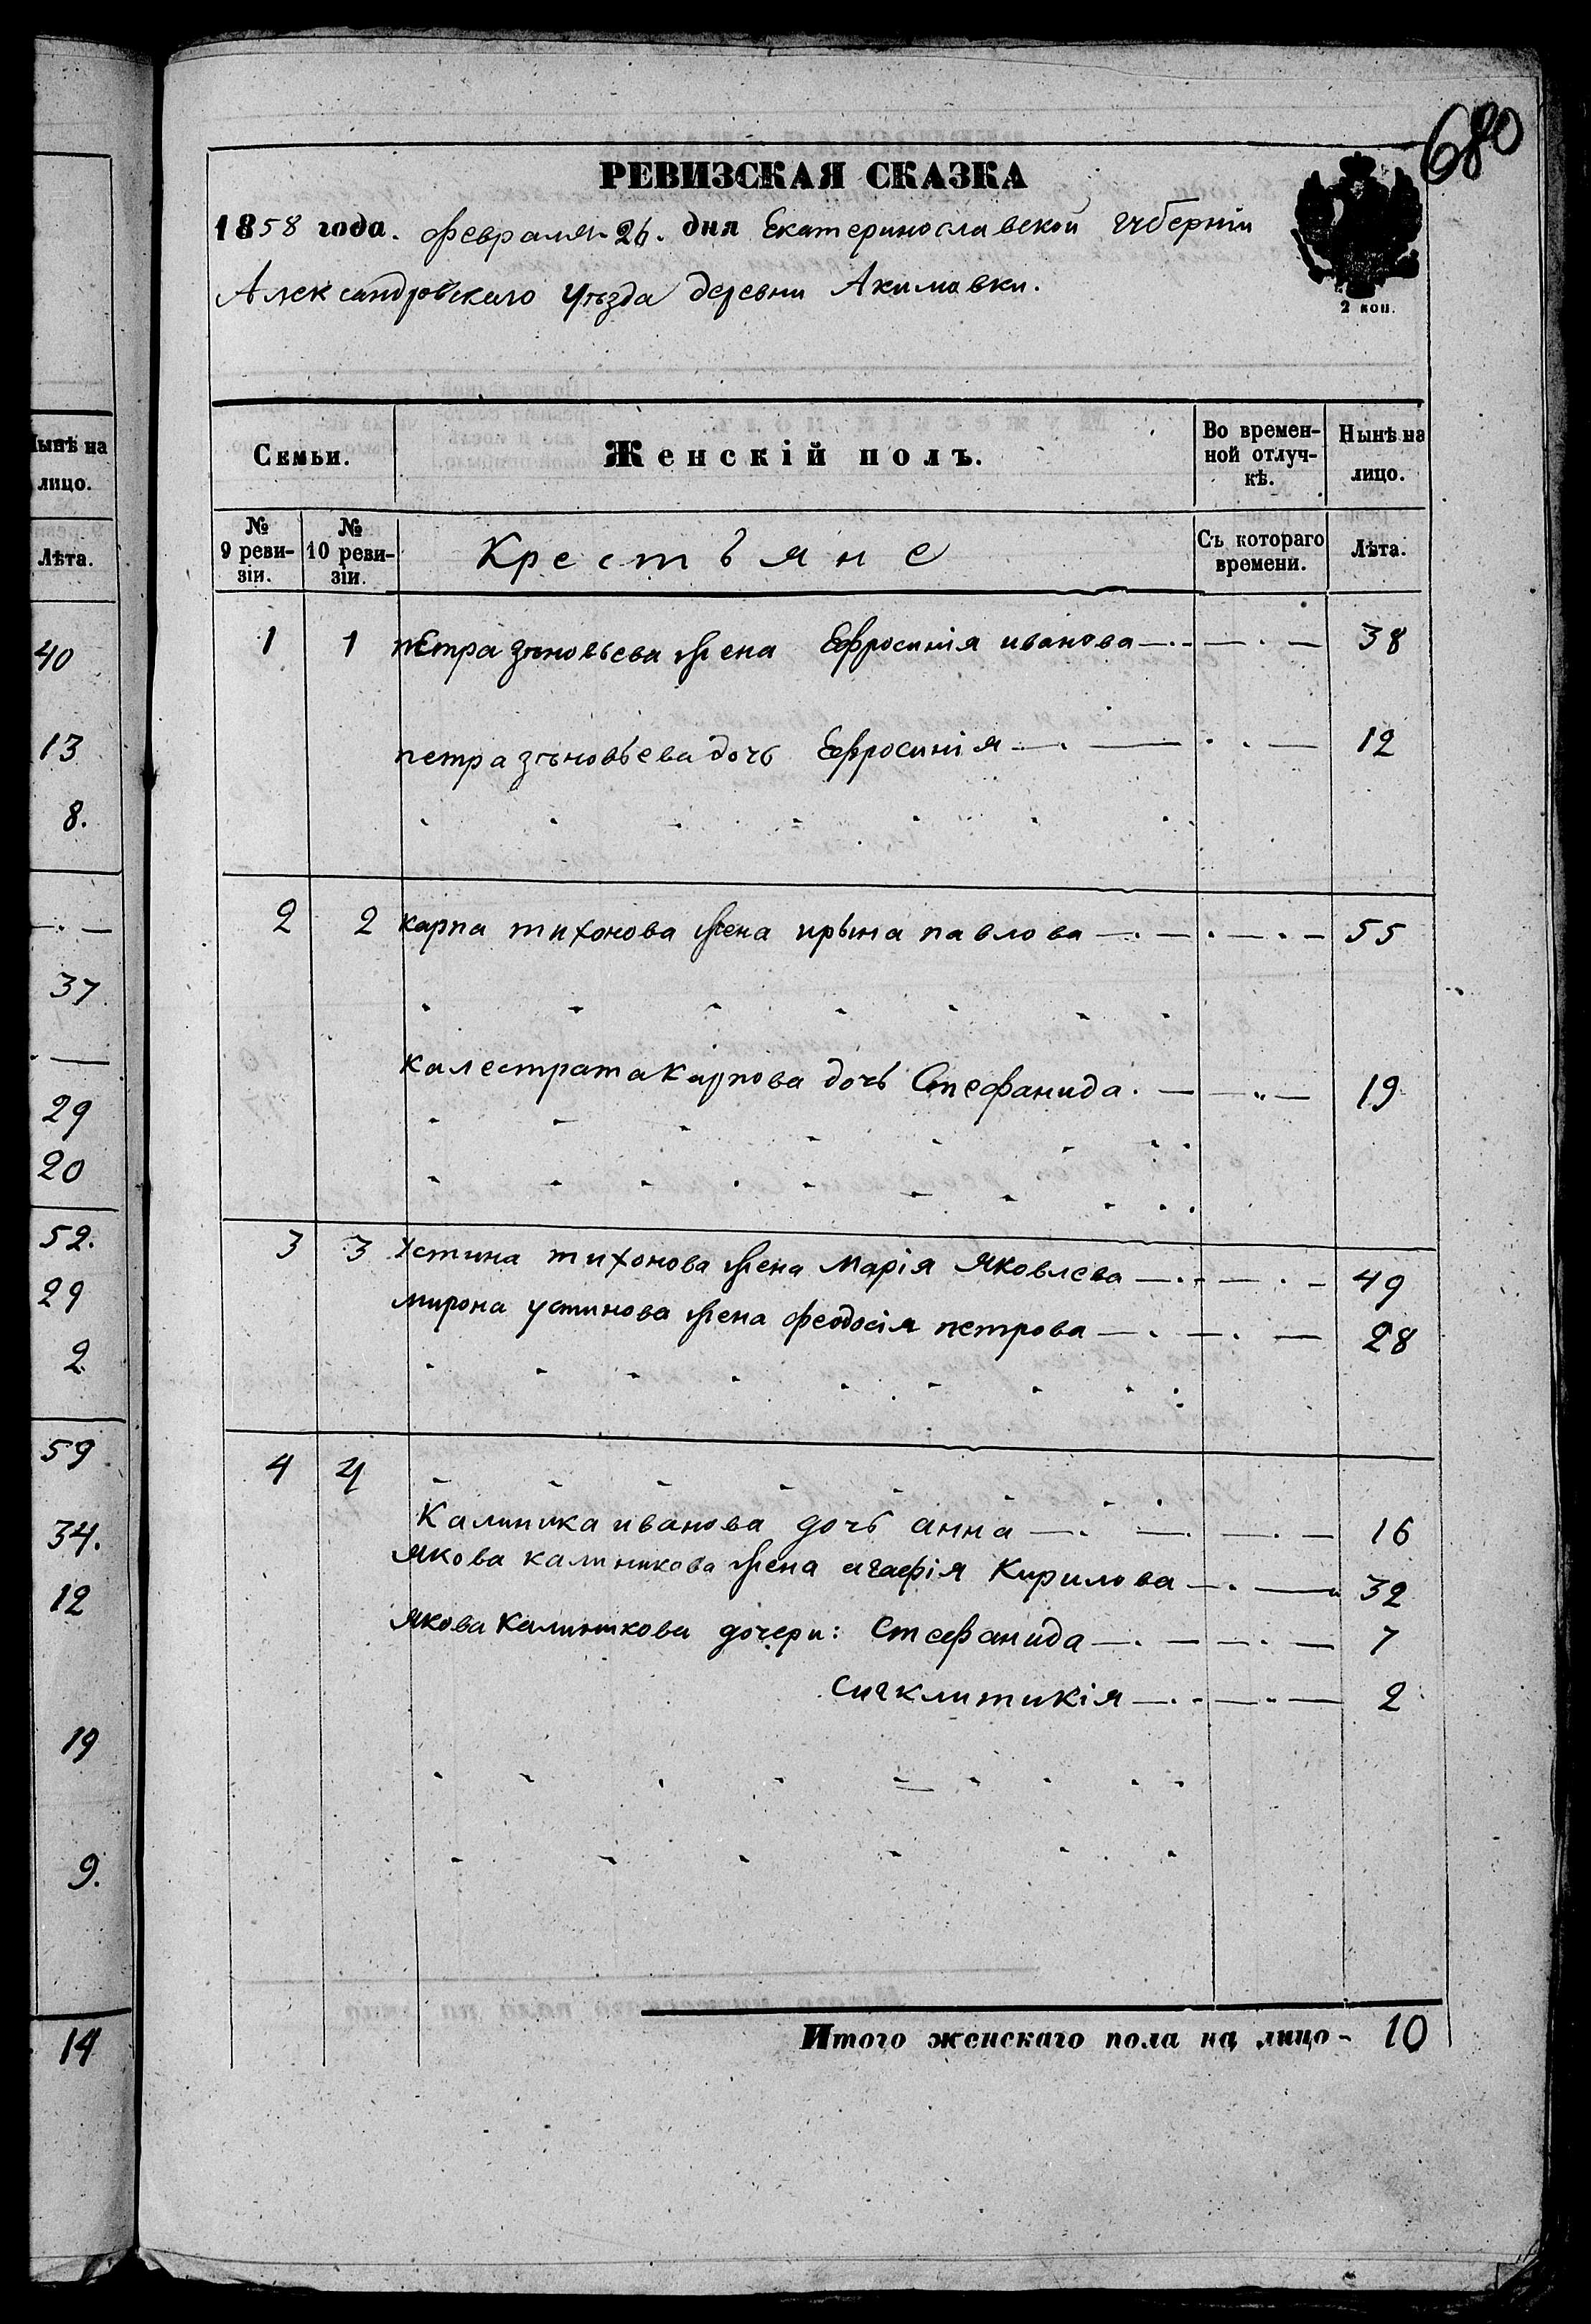 680
РЕВИЗСКАЯ СКАЗКА
1858 года. февраля 26. дня Екатеринославской губернiи
Александровскаго уѣзда деревни Акимовки.
2 коп.
Семьи.
Женскій полъ.
Во времен-
ной отлуч-
кѣ.
Нынѣ на
лицо.
№
9 реви-
зіи.
№
10 реви-
зіи.
Крестьяне
Съ котораго
времени.
Лѣта.
1 1 петра зѣновьева жена Ефросинiя иванова 38
петра зѣновьева дочь Ефросинiя 12
2 2 карпа тихонова жена ирына павлова 55
калестрата карпова дочь Стефанида. 19
3 3 Устина тихонова жена марiя яковлева 49
мирона устинова жена феодосiя петрова 28
4 4
Калиника иванова дочь анна 16
якова калиникова жена агафiя Кирилова 32
якова калиникова дочери: Стефанида 7
сигклитикiя 2
Итого женскаго пола на лицо - 10
Нынѣ на
лицо.
Лѣта.
40
13
8.
37
29
20
52.
29
2
59
34.
12
19
9.
14